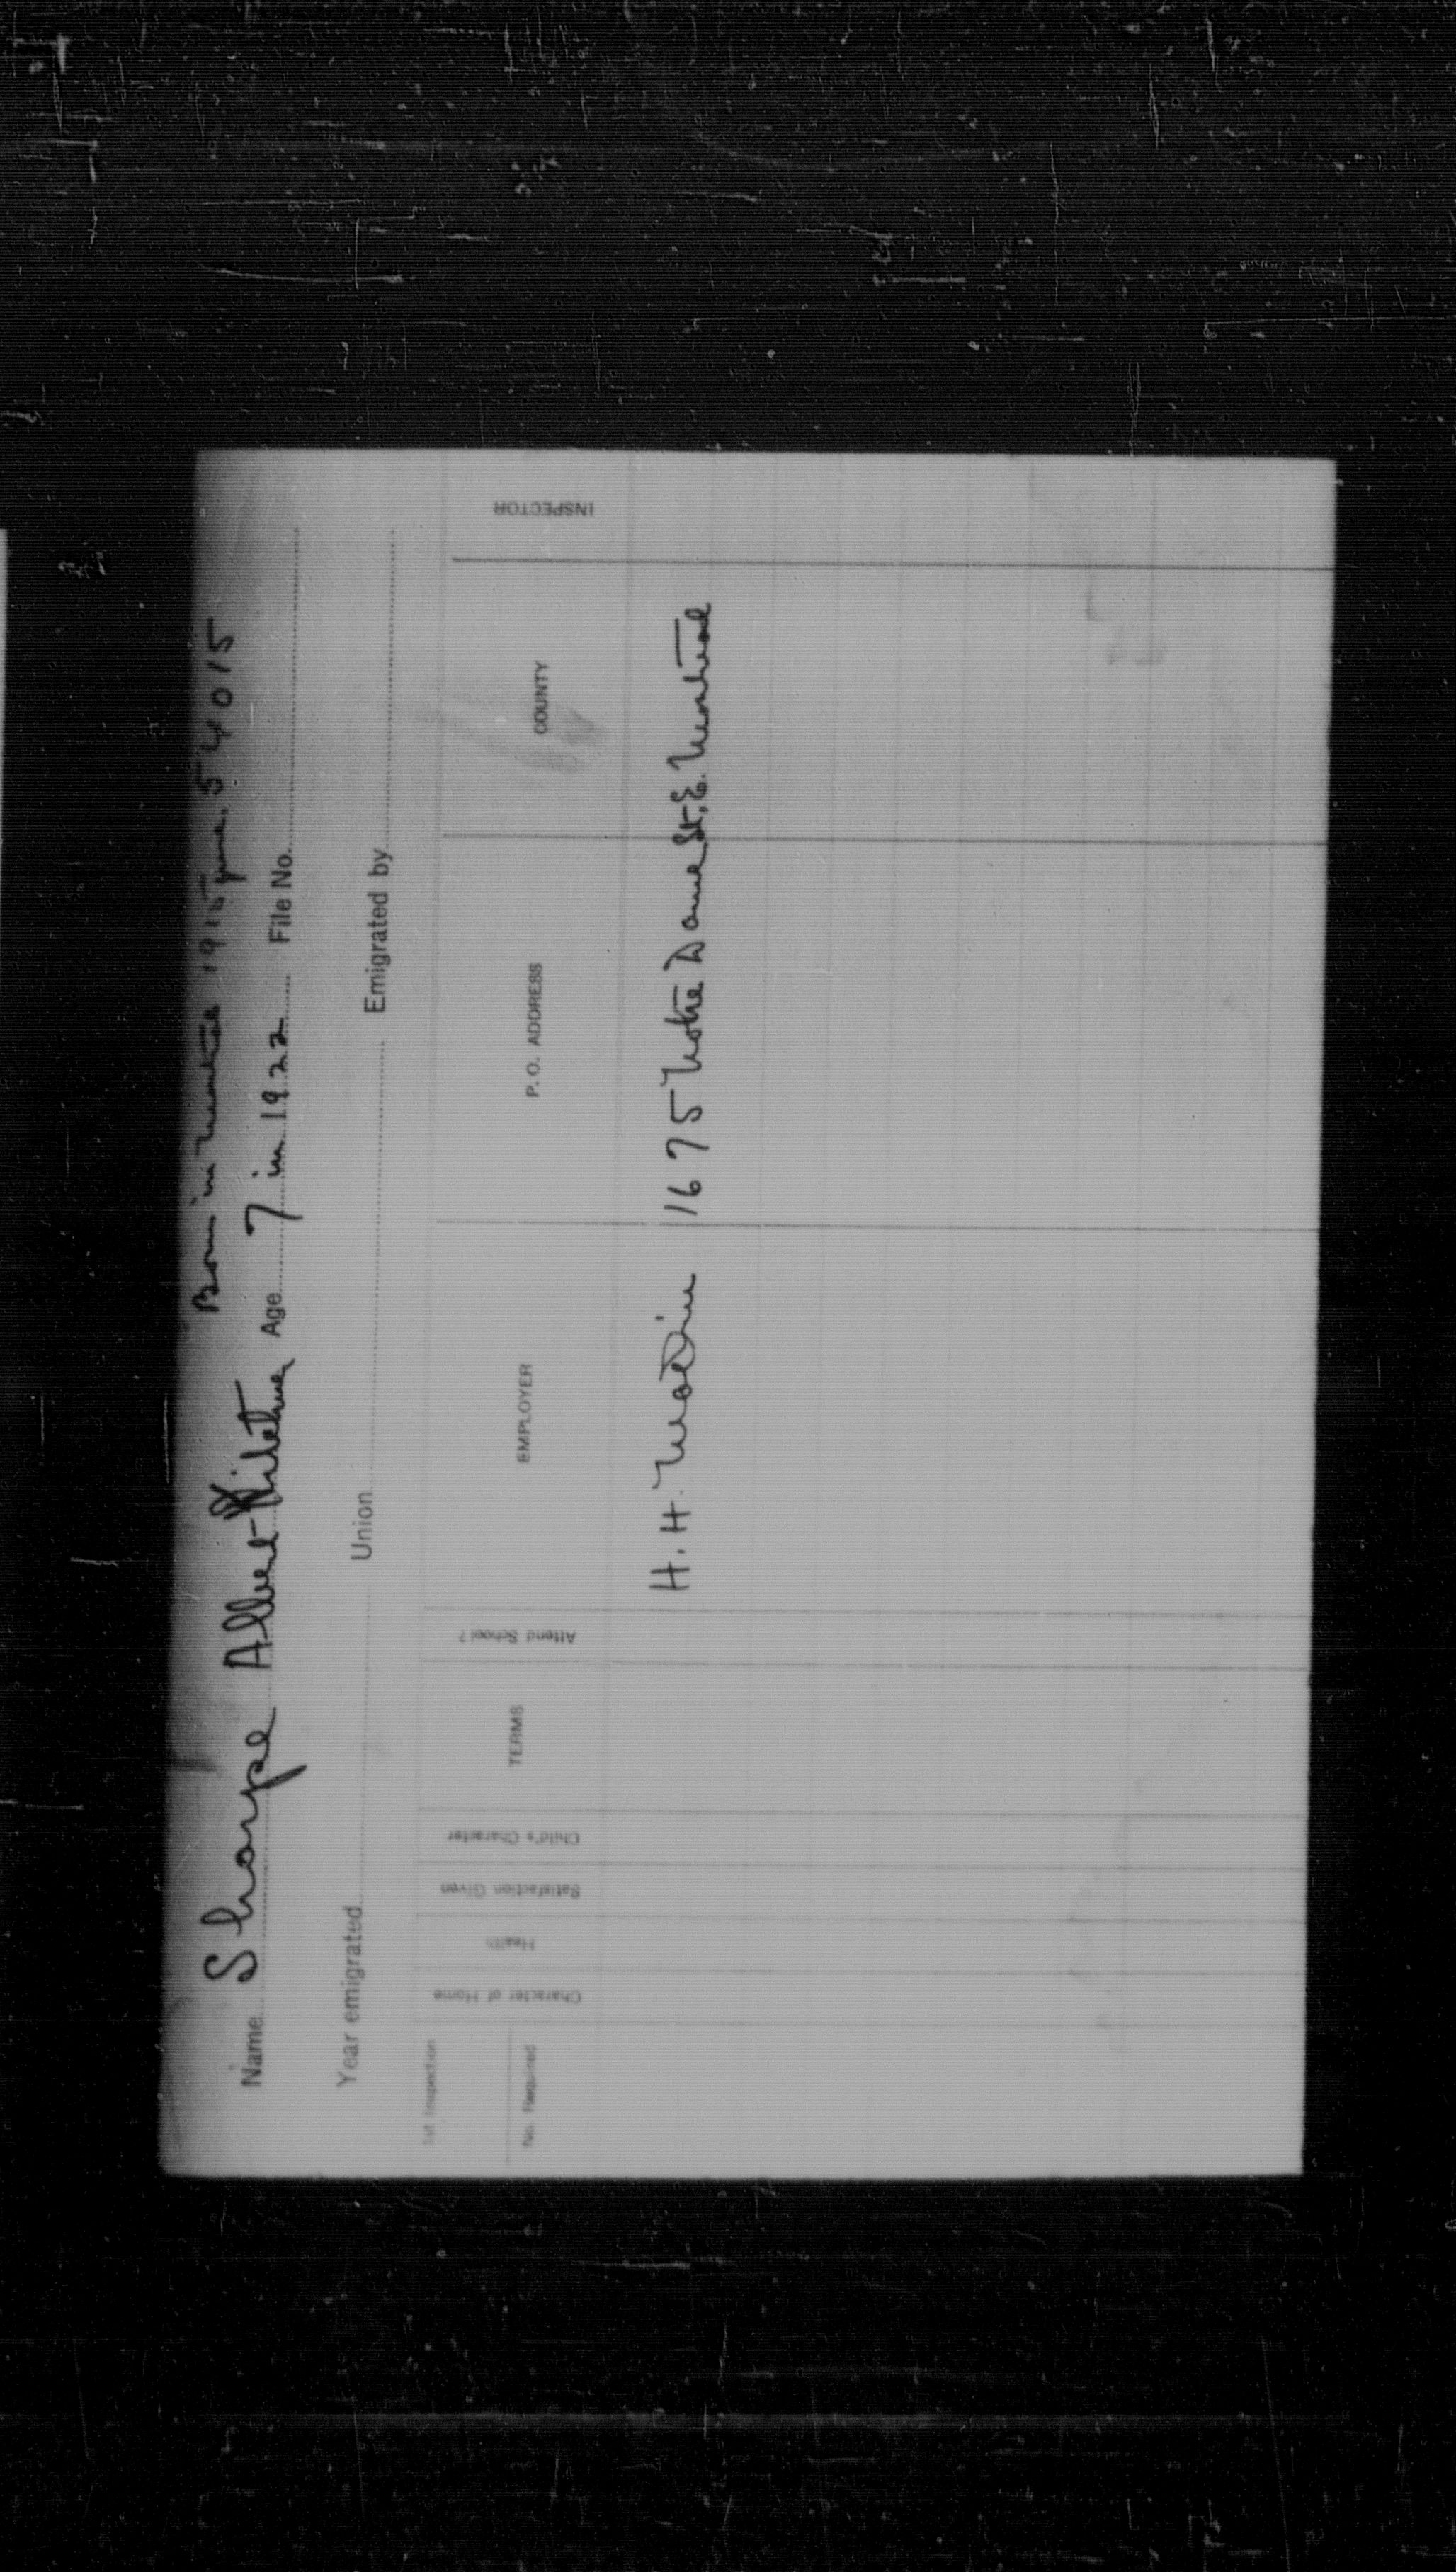 Born in Montreal 1915 June. 54015
Name Sharpe Albert Age 7 in 1922 File No.
Year emigrated Union Emigrated by
1st Inspection
No. Required
Character of Home
Health
Satisfaction Given
Child's Character
TERMS
Attend School?
EMPLOYER
P. O. ADDRESS
COUNTY
INSPECTOR
H. H. 1675 Notre Dame St. E. Montreal